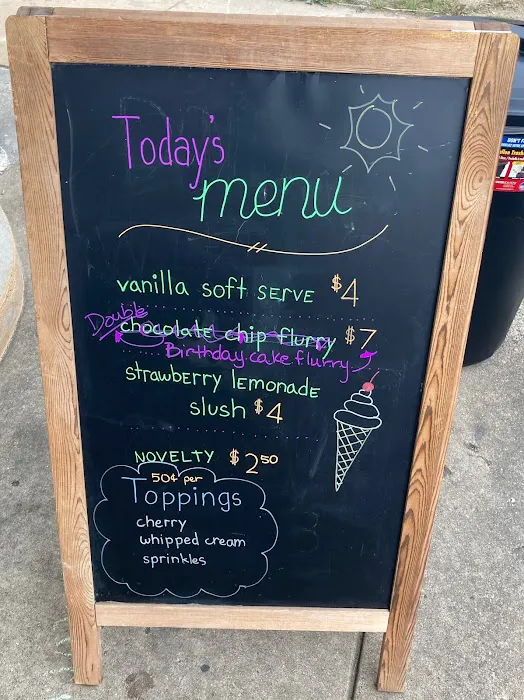 Today's
menu
vanilla soft serve $4
Double
chocolate chip flurry $7
Birthday cake flurry
strawberry lemonade
slush $4
NOVELTY $2 50
50¢ per
Toppings
cherry
whipped cream
sprinkles